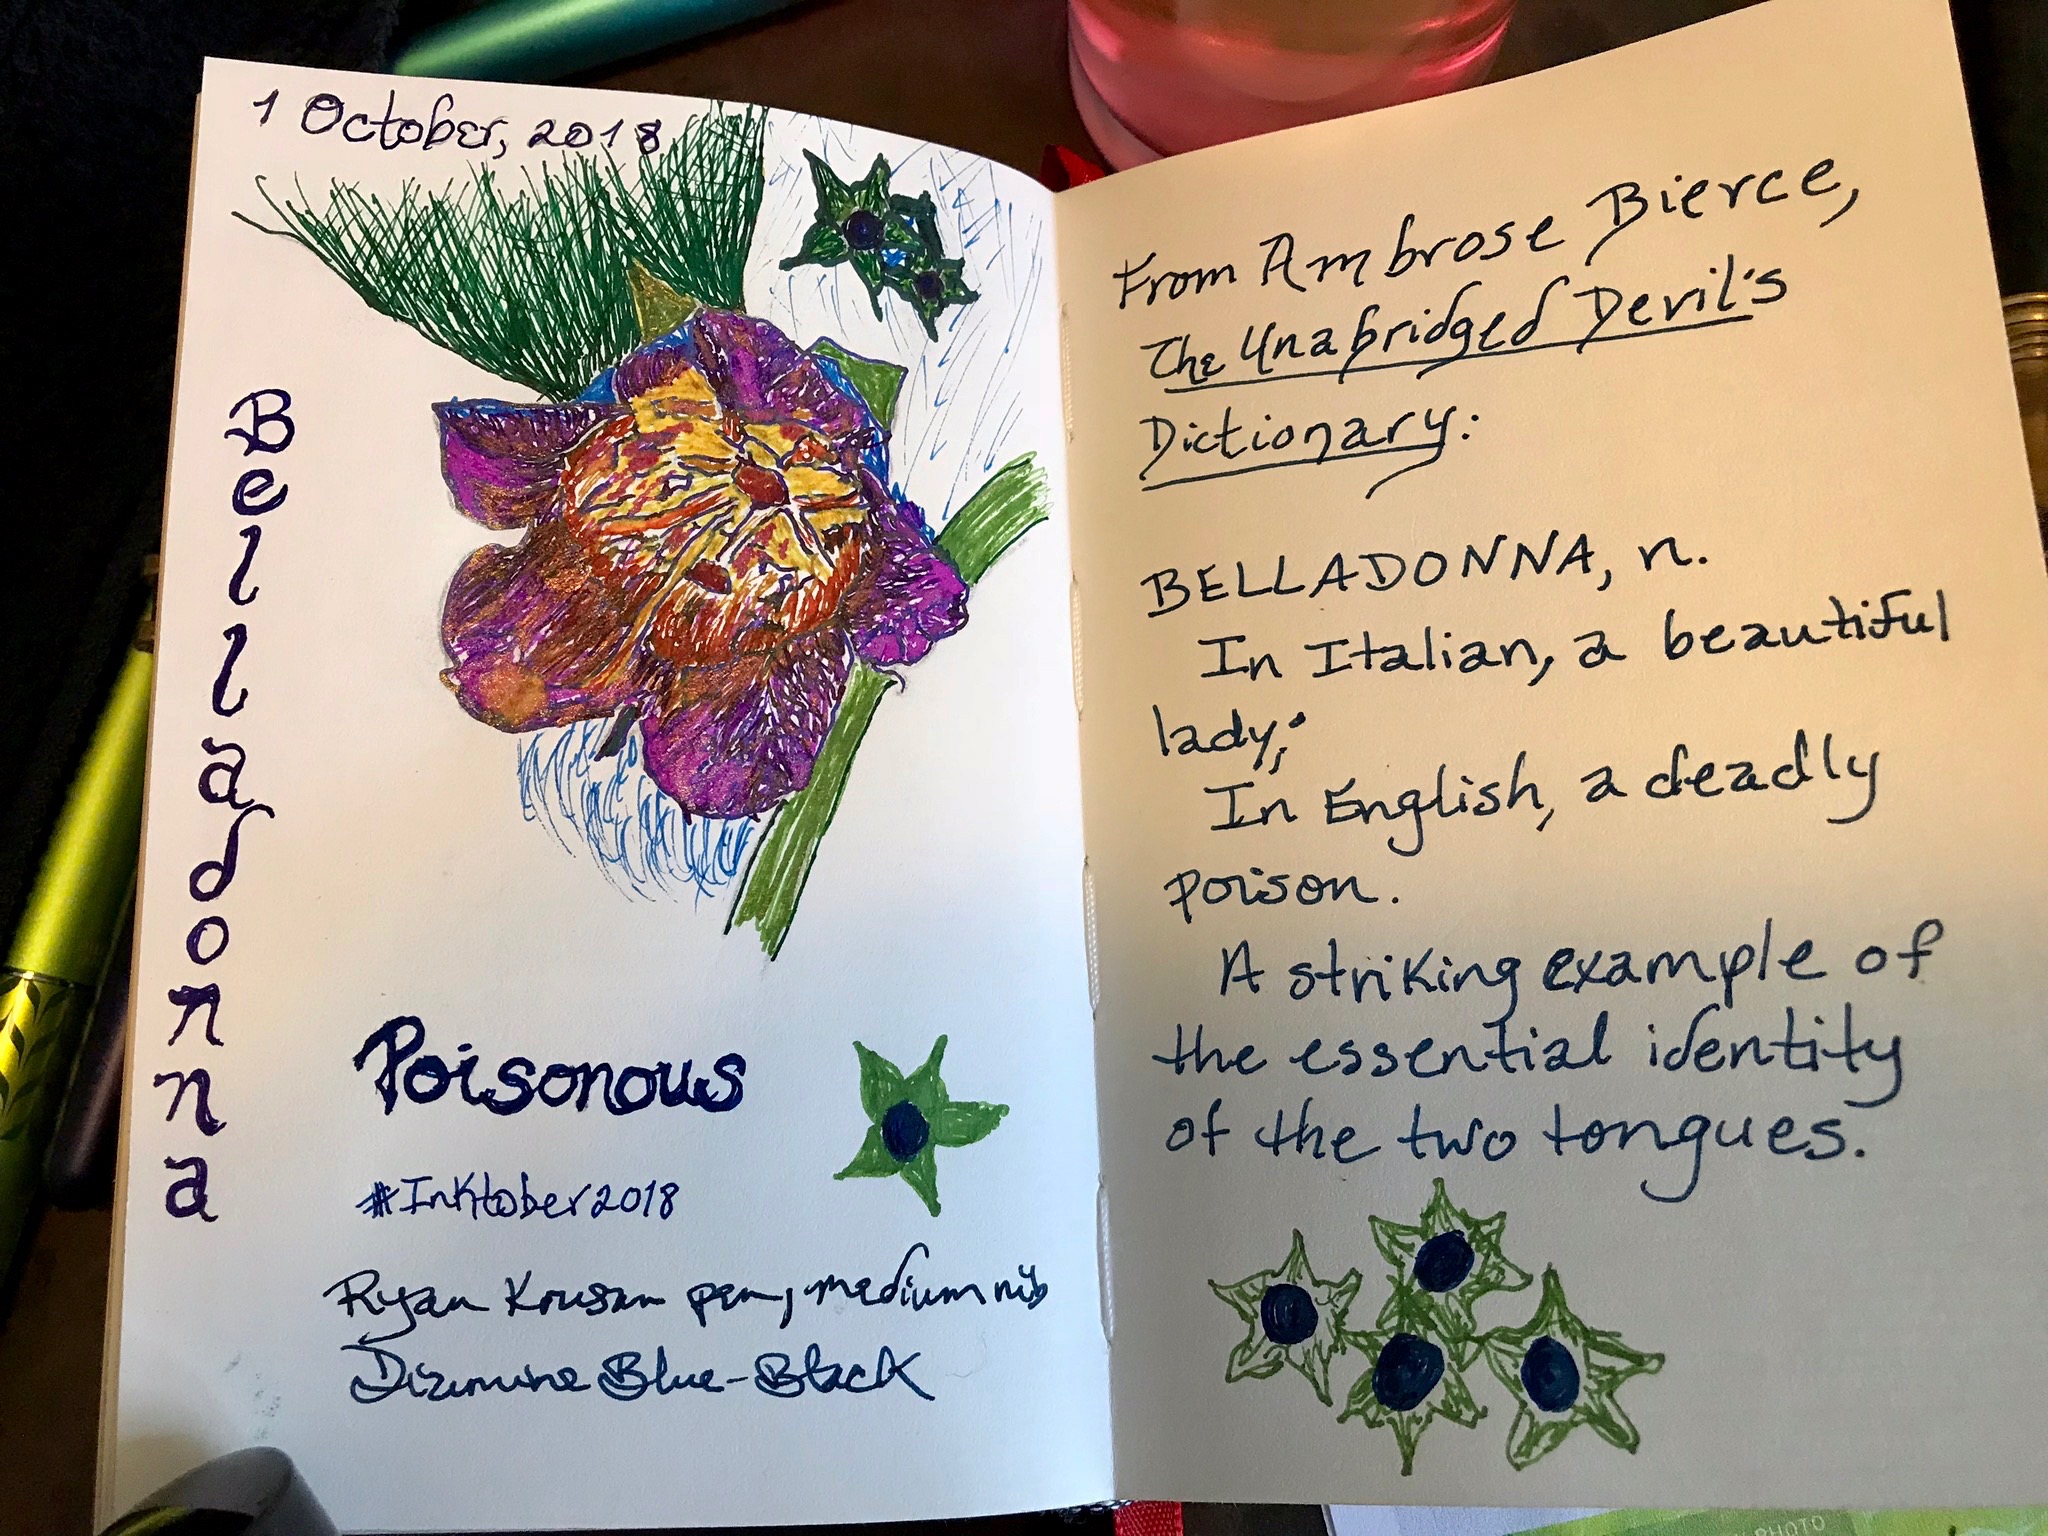 1 October, 2018
Belladonna
Poisonous
#Inktober2018
Ryan Krusan pen, medium nib
Diamine Blue-Black
From Ambrose Bierce,
The Unabridged Devil's
Dictionary:
BELLADONNA, n.
In Italian, a beautiful
lady;
In English, a deadly
poison.
A striking example of
the essential identity
of the two tongues.
PHOTO